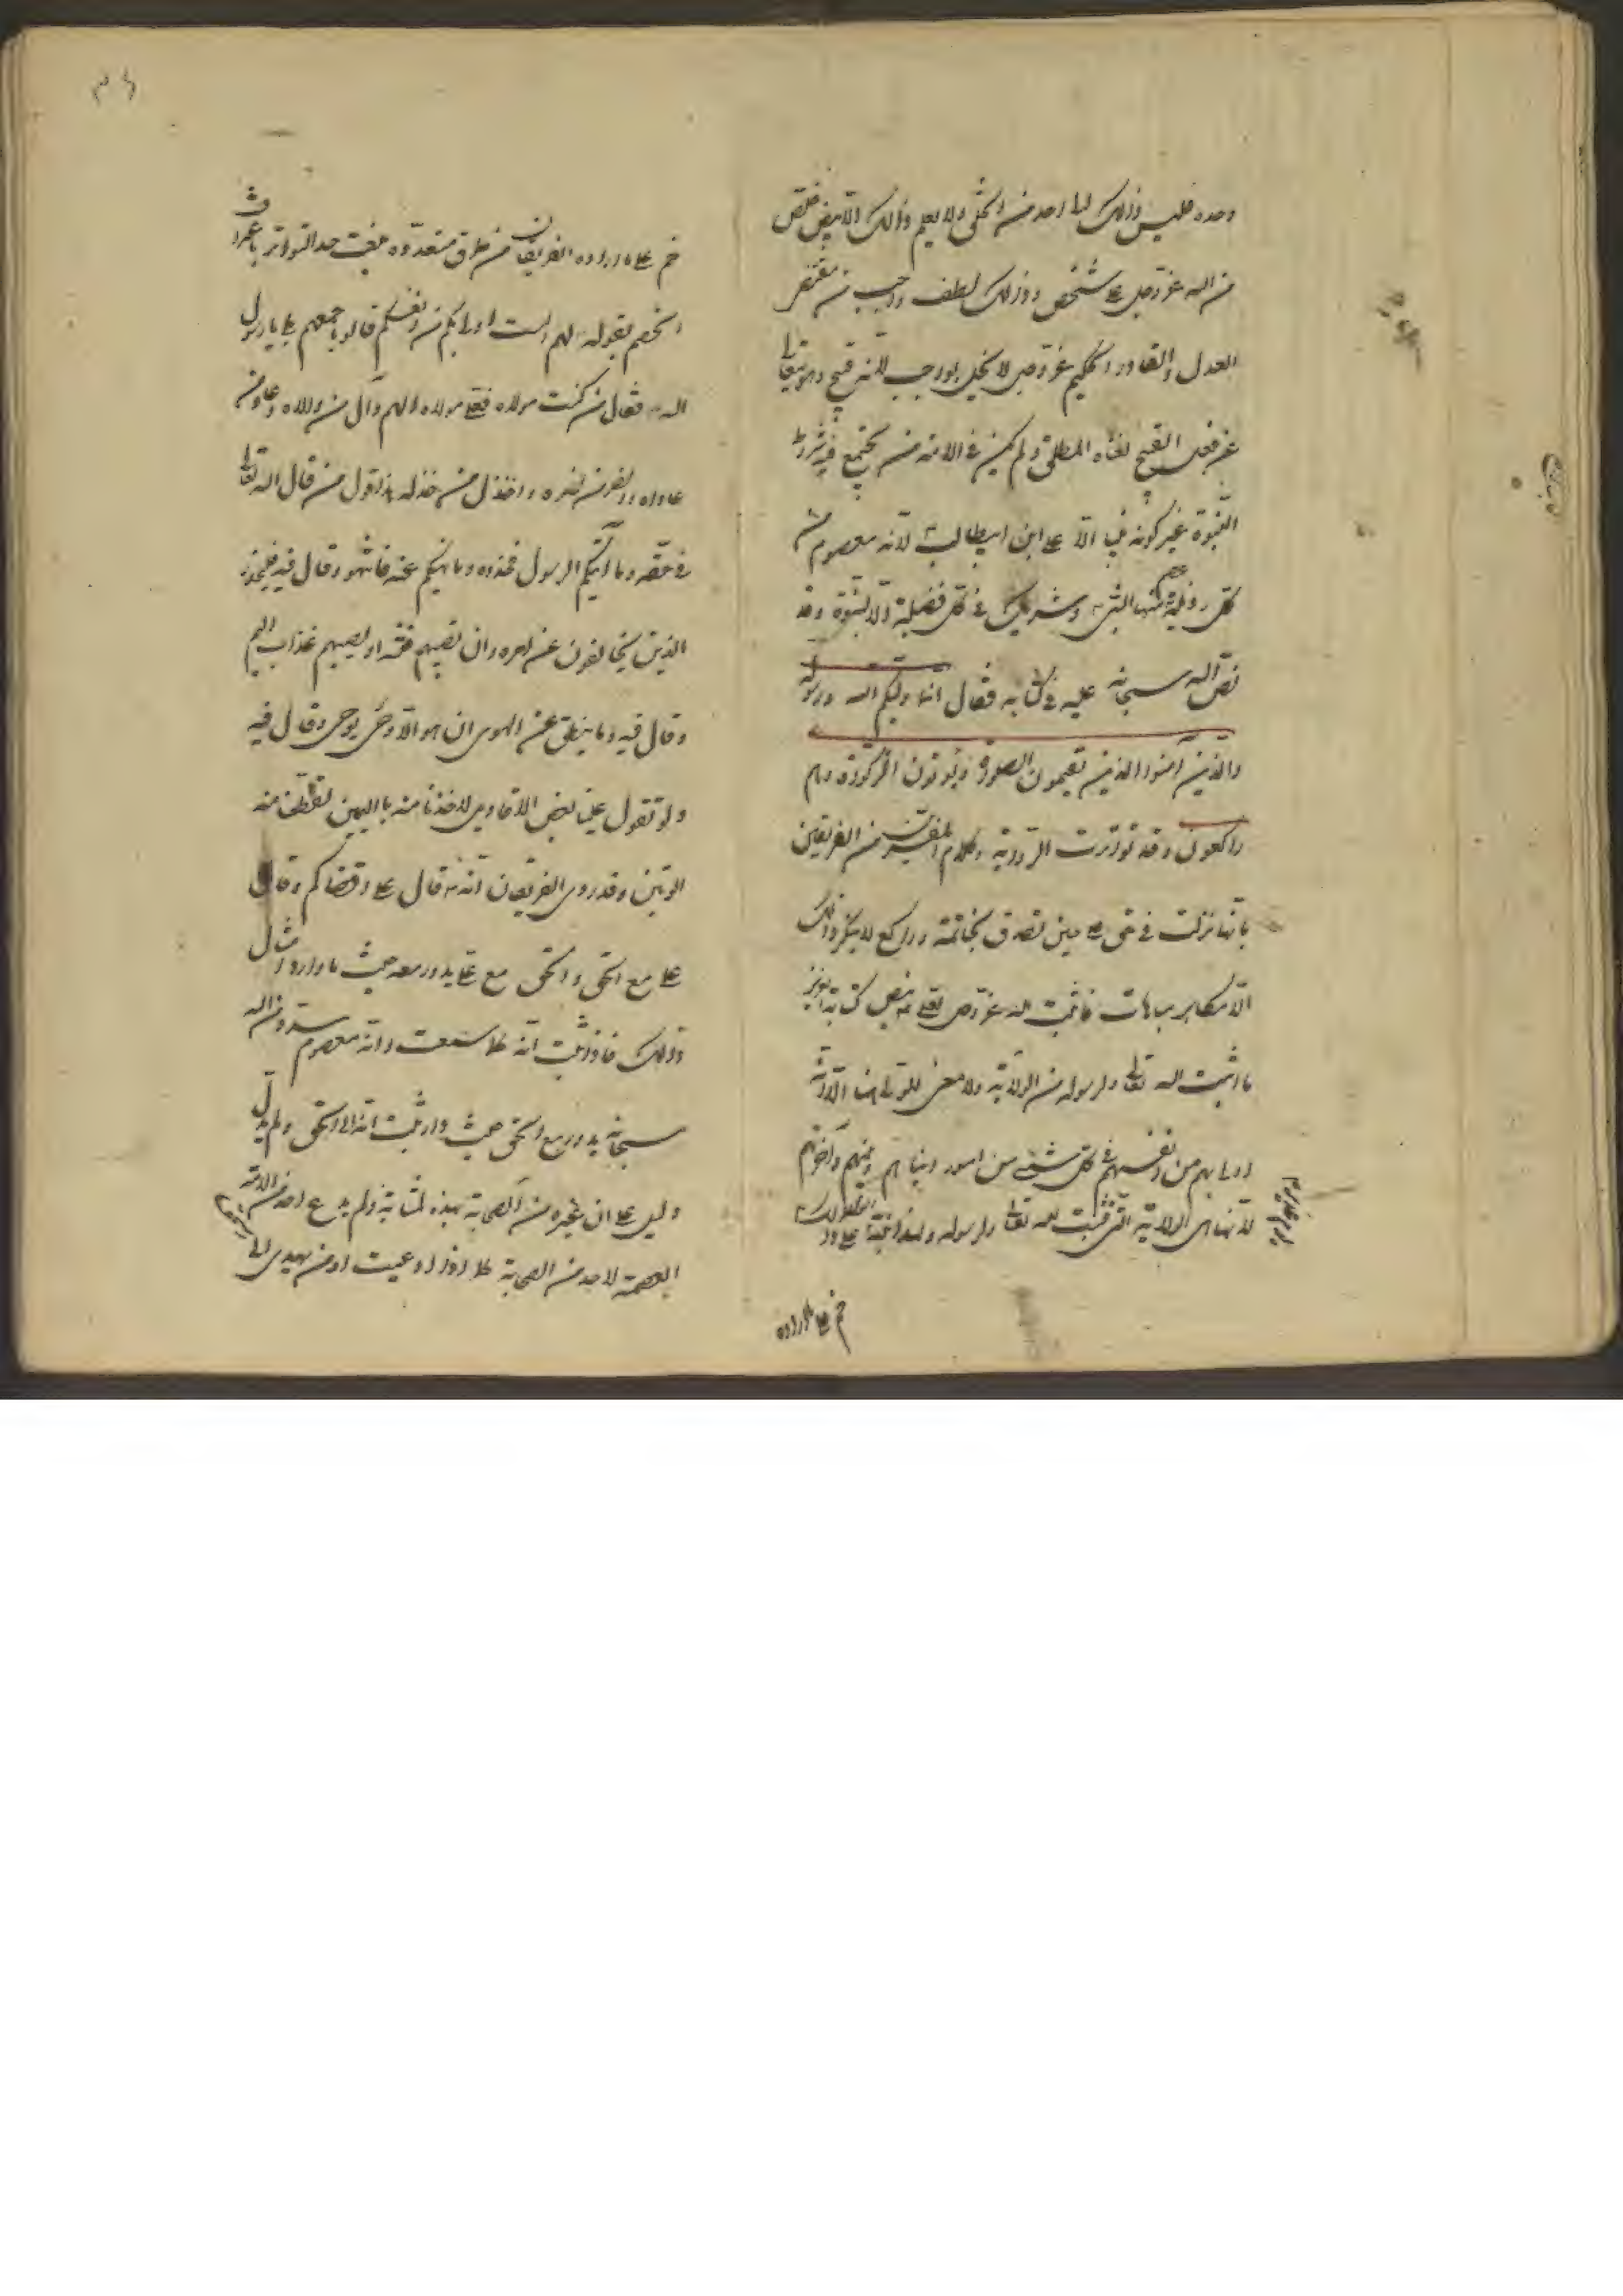 وحده فليس ذلك الى احد من الخلق ولا يعلم ذلك الا بنص خاص
من الله عز وجل على شخص وذلك لطف واجب من مقتضى
العدل والقادر الحكيم عز وجل لا يخل بواجب لانه قبيح وهو متعالى
عن فعل القبيح لغناه المطلق ولم يكن فى الامة من يجتمع فيه شرائط
النبوة غير كونه نبيا الا على ابن ابيطالب لانه معصوم من
كل رذيلة النبى وشريك فى كل فضيلة الا النبوة وقد
نص الله سبحانه عليه فى كتابه فقال انما وليكم الله ورسوله
والذين آمنوا الذين يقيمون الصلوة ويؤتون الزكوة وهم
راكعون وقد تواترت الرواية وكلام المفسرين من الفريقين
بانها نزلت فى على حين تصدق بخاتمه وراكع لا ينكر ذلك
الا مكابر مباهت فاثبت الله عز وجل لعلى بنص كتابه العزيز
ما اثبت الله تعالى ولرسوله من الولاية ولا معنى للولى هنا الا انه
اولى بهم من انفسهم فى كل شىء من امور دنياهم ودينهم وآخرتهم
لانها هى الولاية التى ثبتت لله تعالى ولرسوله
خم على ما رواه
خم على ما رواه الفريقان من طرق متعدده بلغت حد التواتر باعتراف
الخصم بقوله لهم الست اولى بكم من انفسكم قالوا باجمعهم بلى يا رسول
الله فقال من كنت مولاه فعلى مولاه اللهم وآل من والاه وعاد من
عاداه وانصر من نصره واخذل من خذله بذا يقول من قال الله تعالى
فى حقه وما آتيكم الرسول فخذوه وما نهيكم عنه فانتهوا وقال فيه فليحذر
الذين يخالفون عن امره ان تصيبهم فتنة او يصيبهم عذاب اليم
وقال فيه وما ينطق عن الهوى ان هو الا وحى يوحى وقال فيه
ولو تقول علينا بعض الاقاويل لاخذنا منه باليمين لقطعنا منه
الوتين وقد روى الفريقان انه قال على اقضاكم وقال
على مع الحق والحق مع على يدور معه حيث ما دار وامثال
ذلك فاذا ثبت انه كما سمعت وانه معصوم مسدد من الله
سبحانه يدور مع الحق حيث دار ثبت انه الى الحق ولم يدل
دليل على ان غيره من الصحابة بهذه المثابة ولم يدع احد من الامة
العصمة لاحد من الصحابة كما ادعيت افمن يهدى الى